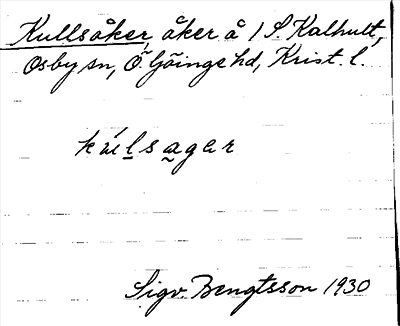 Kullsåker, åker å 1 S. Kalhult,
Osby sn, Ö Göinge hd, Krist. l.
kúlsagar
Sigv. Bengtsson 1930